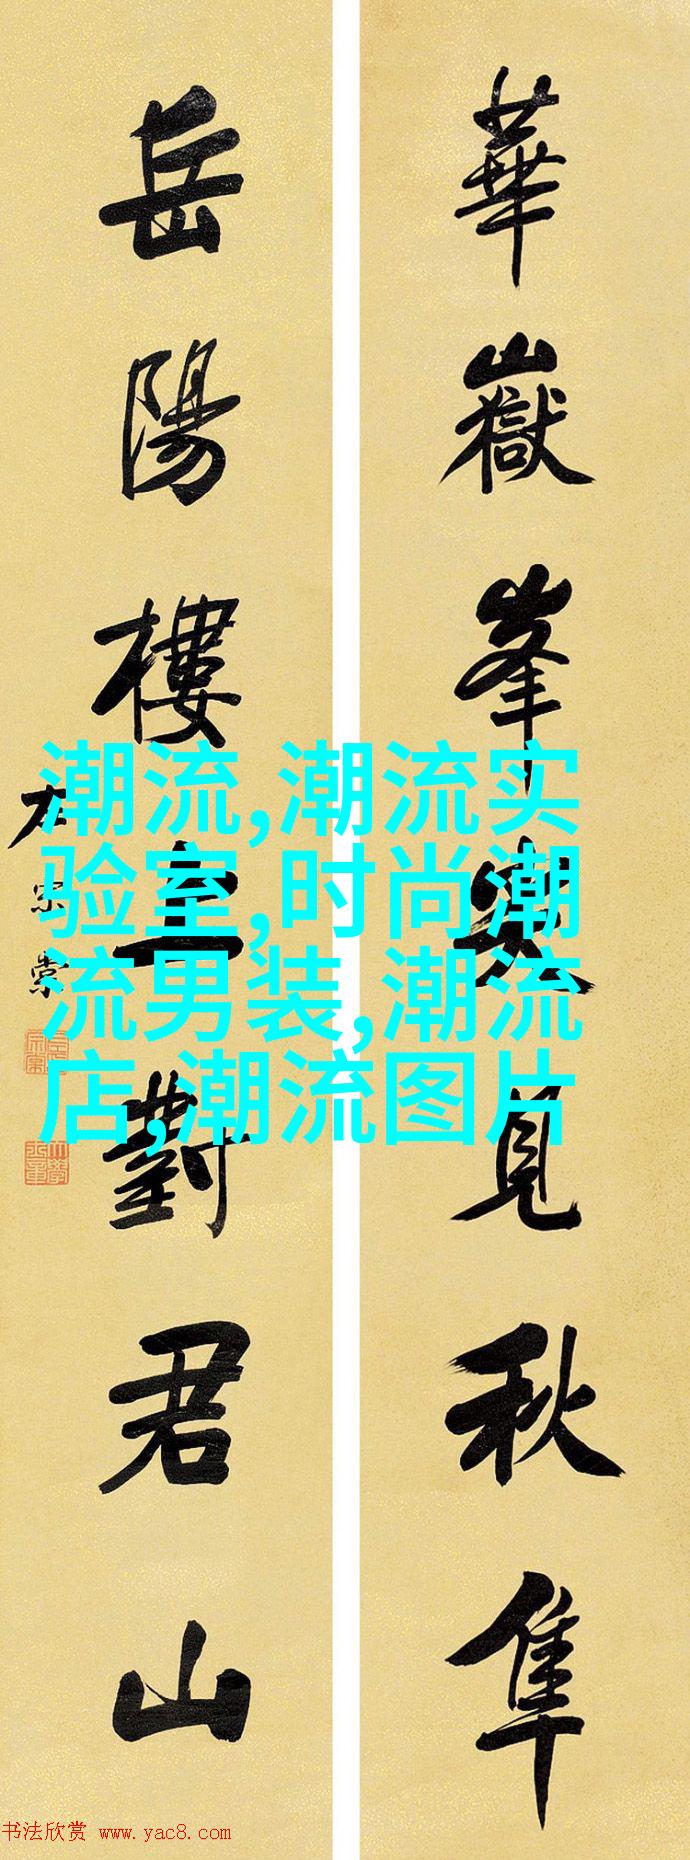 華嶽峯尖見秋隼
岳陽樓上對君山
左宗棠
潮流,潮流实
验室,时尚潮
流男装,潮流
店,潮流图片
书法欣赏 www.yac8.com